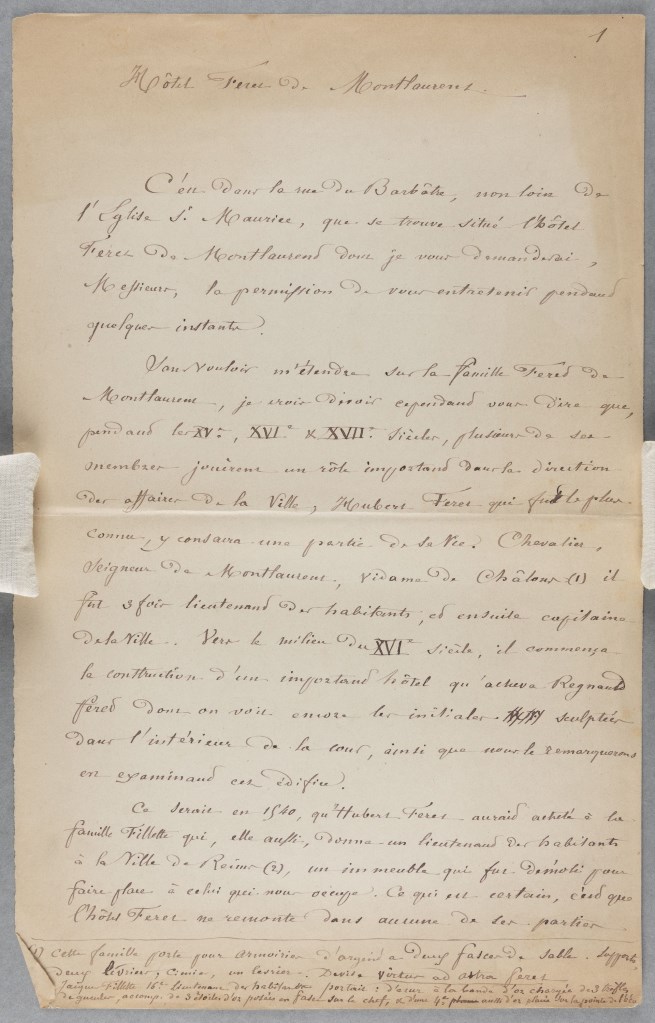 1
Hôtel Feret de Montlaurent.
C'est dans la rue du Barbâtre, non loin de
l'Eglise St Maurice, que se trouve situé l'hôtel
Feret de Montlaurent dont je vous demanderai,
Messieurs, la permission de vous entretenir pendant
quelques instants.
Sans vouloir m'étendre sur la famille Feret de
Montlaurent, je crois devoir cependant vous dire que,
pendant les XVe, XVIe & XVIIe siècles, plusieurs de ses
membres jouèrent un rôle important dans la direction
des affaires de la Ville; Hubert Feret qui fut le plus
connu, y consacra une partie de sa vie. Chevalier,
Seigneur de Montlaurent, Vidame de Châlons (1) il
fut 3 fois lieutenant des habitants, et ensuite capitaine
de la Ville. Vers le milieu du XVIe siècle, il commença
la contruction d'un important hôtel qu'acheva Regnault
Féret dont on voit encore les initiales sculptées
dans l'intérieur de la cour, ainsi que nous le remarquerons
en examinant cet édifice.
Ce serait en 1540, qu'Hubert Feret aurait acheté à la
famille Fillette qui, elle aussi, donna un lieutenant des habitants
à la Ville de Reims (2), un immeuble qui fut démoli pour
faire place à celui qui nous occupe. Ce qui est certain, c'est que
l'hôtel Feret ne remonte dans aucune de ses parties
(1) Cette famille porte pour armoiries d'argent a deux fasces de sable. Supports
deux lévriers; Cimier, un levrier. Devise Virtus ad astra feret
Jacques Fillette 16e lieutenant des habitants portait: d'azur à la bande d'or chargée de 3 trèfles
de gueules, accomp. de 3 étoiles d'or posées en fasce sur le chef, & d'une 4e aussi d'or placée sur la pointe de l'écu